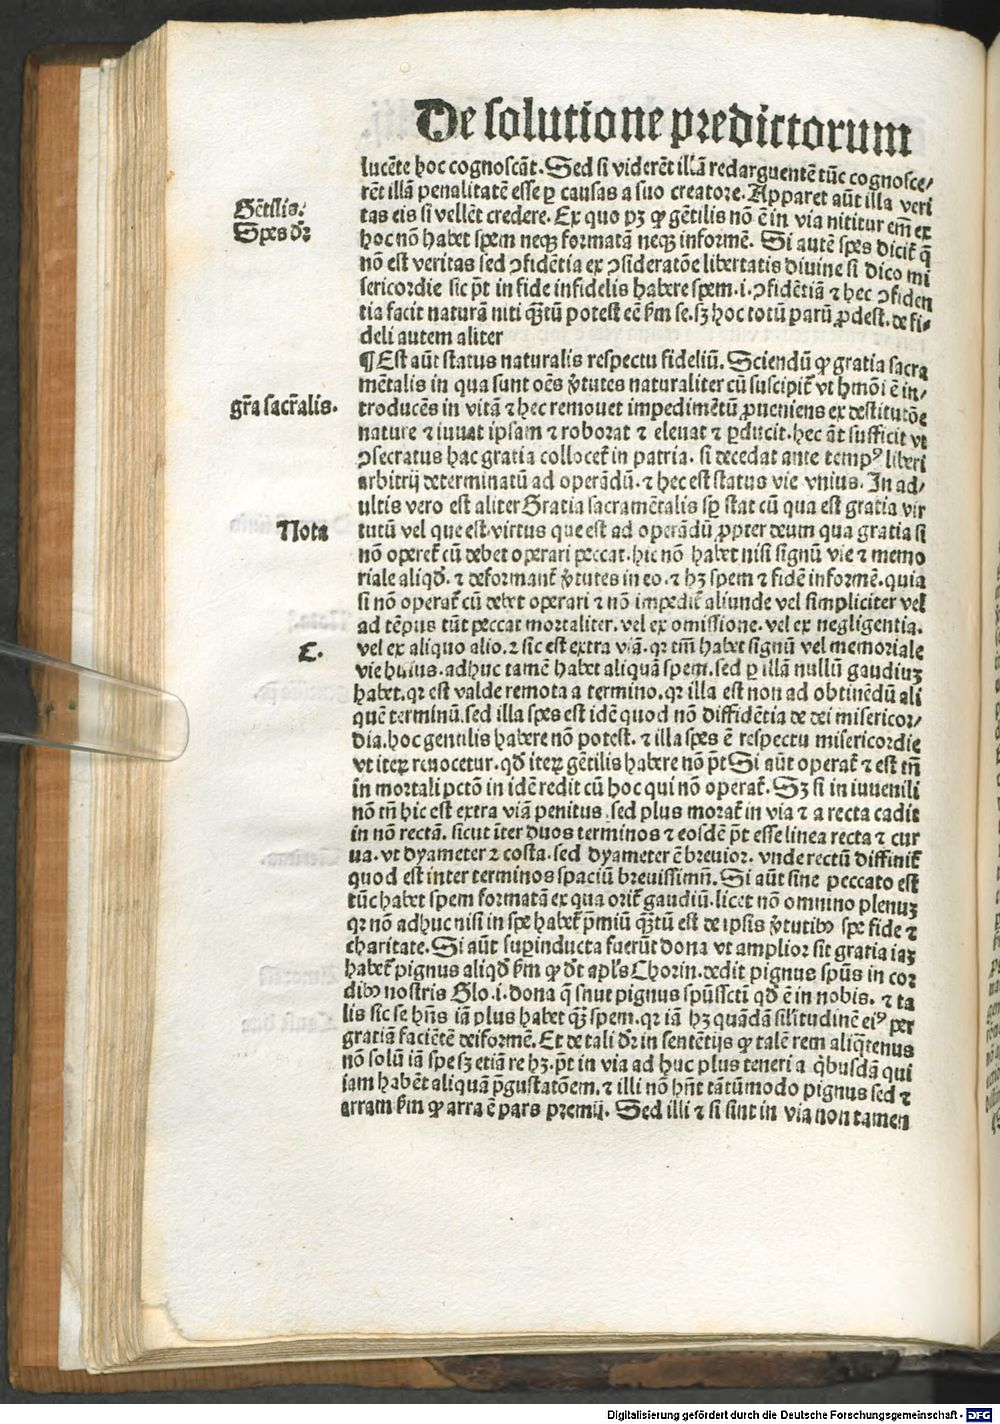 De solutione predictorum
lucēte hoc cognoscāt. Sed si viderēt illā redarguentē tūc cognosce/
rēt illā penalitatē esse ꝑ causas a suo creatore. Apparet aūt illa veri
tas eis si vellēt credere. Ex quo pꝫ ꝙ gētilis nō ē in via nititur em̄ ex
Gētilis.
Spes dr̄
hoc nō habet spem neqꝫ formatā neqꝫ informē. Si autē spes dicit̄ q̄
nō est veritas sed ꝯfidētia ex ꝯsideratōe libertatis diuine si dico mi
sericordie sic p̄t in fide infidelis habere spem .i. ꝯfidētiā ⁊ hec ꝯfiden
tia facit naturā niti qꝫ̄tū potest eē ẜm se. sꝫ hoc totū parū ꝓdest. de fi/
deli autem aliter
¶ Est aūt status naturalis respectu fideliū. Sciendū ꝙ gratia sacra
mētalis in qua sunt oēs v̄tutes naturaliter cū suscipit̄ vt hmōi ē in/
gr̄a sacr̄alis.
troducēs in vitā ⁊ hec remouet impedimētū ꝓueniens ex destitutōe
nature ⁊ iuuat ipsam ⁊ roborat ⁊ eleuat ⁊ ꝑducit. hec āt sufficit vt
ꝯsecratus hac gratia collocet̄ in patria. si decedat ante tempꝰ liberi
arbitrij determinatū ad operādū. ⁊ hec est status vie vnius. In ad/
ultis vero est aliter Gratia sacramētalis sp̄ stat cū qua est gratia vir
Nota
tutū vel que est virtus que est ad operādū ꝓpter deum qua gratia si
nō operet̄ cū debet operari peccat. hic nō habet nisi signū vie ⁊ memo
riale aliqd̄. ⁊ deformant̄ v̄tutes in eo. ⁊ hꝫ spem ⁊ fidē informē. quia
si nō operat̄ cū debet operari ⁊ nō impedit̄ aliunde vel simpliciter vel
ad tēpus tūt peccat mortaliter. vel ex omissione. vel ex negligentia.
C.
vel ex aliquo alio. ⁊ sic est extra viā. qr tm̄ habet signū vel memoriale
vie huius. adhuc tamē habet aliquā spem. sed ꝑ illā nullū gaudiuꝫ
habet. qr est valde remota a termino. qr illa est non ad obtinēdū ali
quē terminū. sed illa spes est idē quod nō diffidētia de dei misericor/
dia. hoc gentilis habere nō potest. ⁊ illa spes ē respectu misericordie
vt iterꝝ reuocetur. qd̄ iterꝝ gētilis habere nō p̄t Si aūt operat̄ ⁊ est tn̄
in mortali pctō in idē redit cū hoc qui nō operat̄. Sꝫ si in iuuenili
nō tn̄ hic est extra viā penitus. sed plus morat̄ in via ⁊ a recta cadit
in nō rectā. sicut īter duos terminos ⁊ eosdē p̄t esse linea recta ⁊ cur
ua. vt dyameter ⁊ costa. sed dyameter ē breuior. vnde rectū diffinit̄
quod est inter terminos spaciū breuissimū. Si aūt sine peccato est
tūc habet spem formatā ex qua orit̄ gaudiū. licet nō omnino plenuꝫ
qr nō adhuc nisi in spe habet̄ p̄miū qꝫ̄tū est de ipsis v̄tutibꝫ spe fide ⁊
charitate. Si aūt suꝑinducta fuerūt dona vt amplior sit gratia iaꝫ
habet̄ pignus aliqd̄ ẜm ꝙ dt̄ apl's Chorin. dedit pignus spūs in cor
dibꝫ nostris Glo .i. dona q̄ sunt pignus spūssctī qd̄ ē in nobis. ⁊ ta
lis sic se hn̄s iā plus habet qꝫ̄ spem. qr iā hꝫ quādā sil'itudinē eiꝰ per
gratiā faciētē deiformē. Et de tali dr̄ in sentētijs ꝙ talē rem aliq̄tenus
nō solū iā spe sꝫ etiā re hꝫ. p̄t in via ad huc plus teneri a q̇busdā qui
iam habēt aliquā p̄gustatōem. ⁊ illi nō hn̄t tātūmodo pignus sed ⁊
arram ẜm ꝙ arra ē pars premij. Sed illi ⁊ si sint in via non tamen
Digitalisierung gefördert durch die Deutsche Forschungsgemeinschaft - DFG